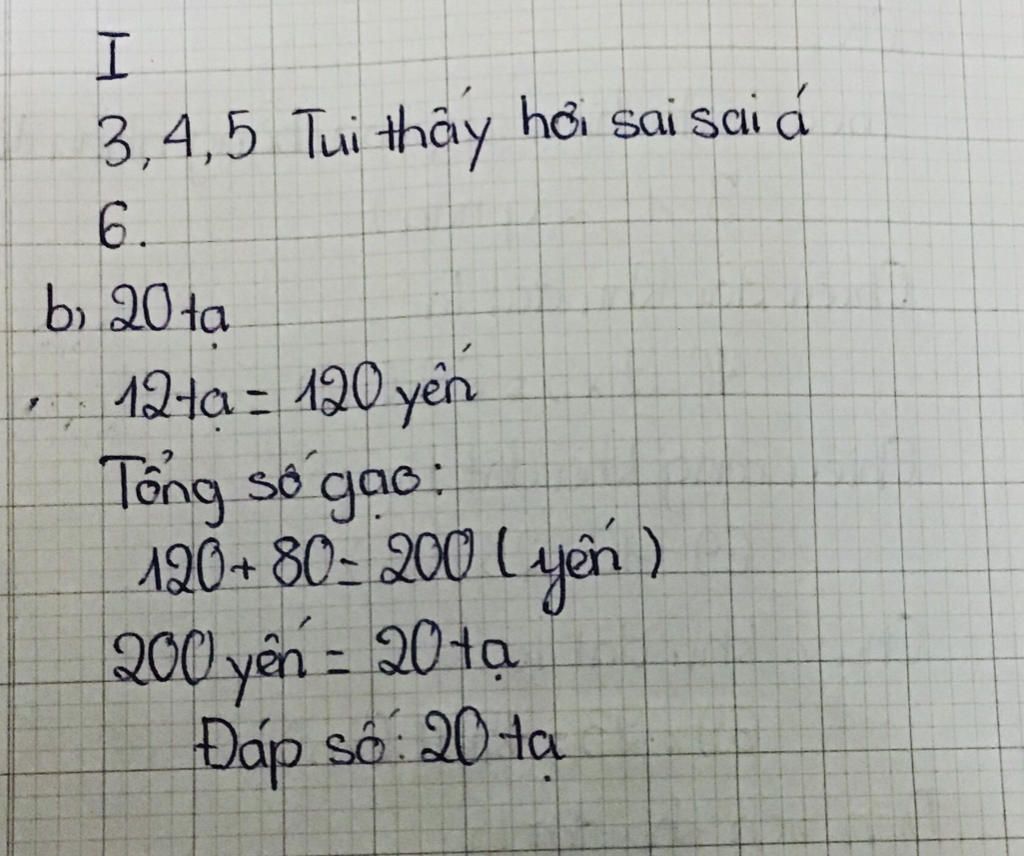 I
3, 4, 5 Tui thấy hơi sai sai á
6.
b, 20 tạ
12 tạ = 120 yến
Tổng số gạo:
120 + 80 = 200 (yến)
200 yến = 20 tạ
Đáp số: 20 tạ